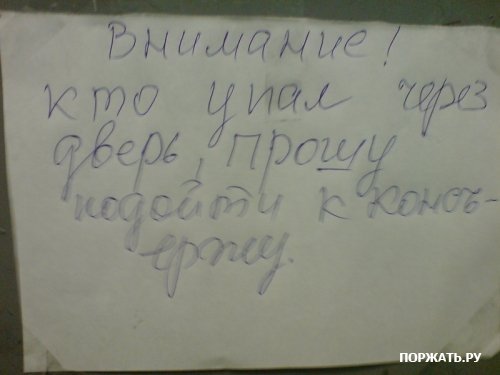 Внимание!
кто упал через
дверь, прошу
подойти к консъ-
ержу.
ПОРЖАТЬ.РУ